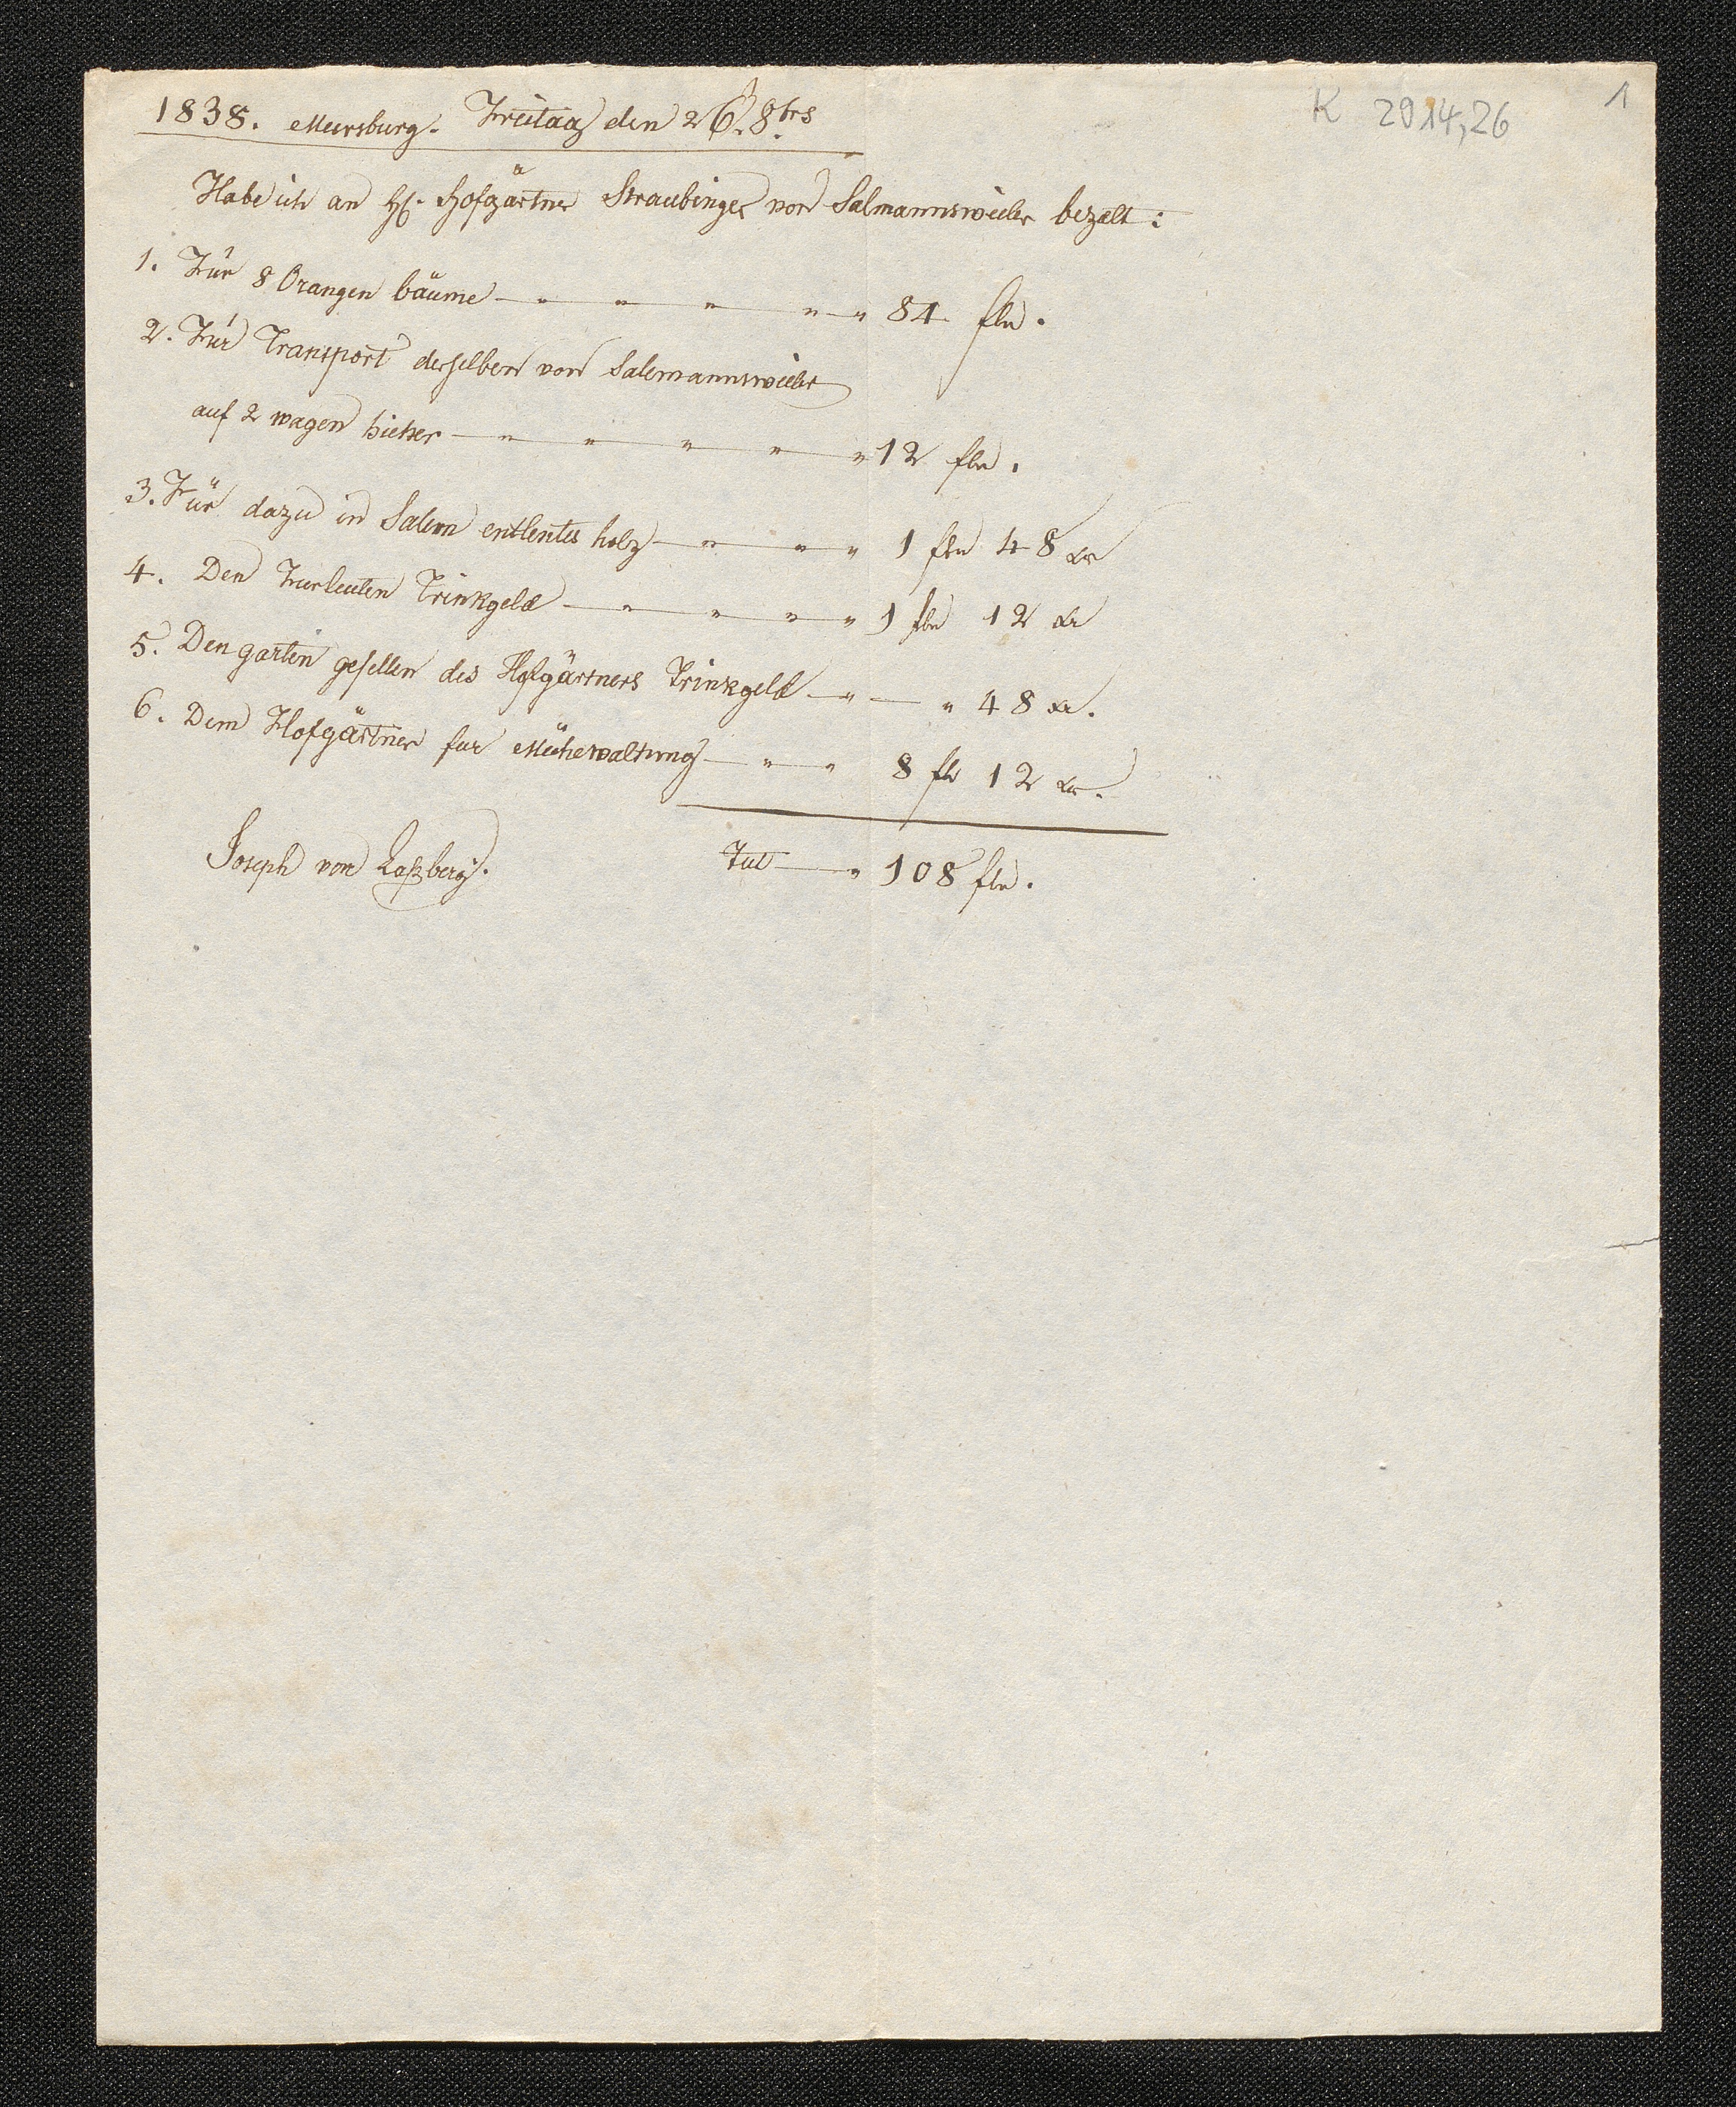 K 2914,26
1
1838. Meersburg. Freitag den 26. 8brs
Habe ich an H. Hofgärtner Straubinger von Salmannsweiler bezalt:
1. Für 8 Orangen bäume — " " " " " 84 fln.
2. Für Transport derselben von Salemannsweiler
auf 2 wagen hieher — " " " " " 12 fln.
3. Für dazu in Salem entlentes holz — " " " 1 fln 48 xr
4. Den Furleuten Trinkgeld — " " " " 1 fln 12 xr
5. Den garten gesellen des Hofgärtners Trinkgeld — " — " 48 xr.
6. Dem Hofgärtner fur Mühewaltung — " " 8 fl 12 xr.
Tut — " 108 fln.
Joseph von Laßberg.